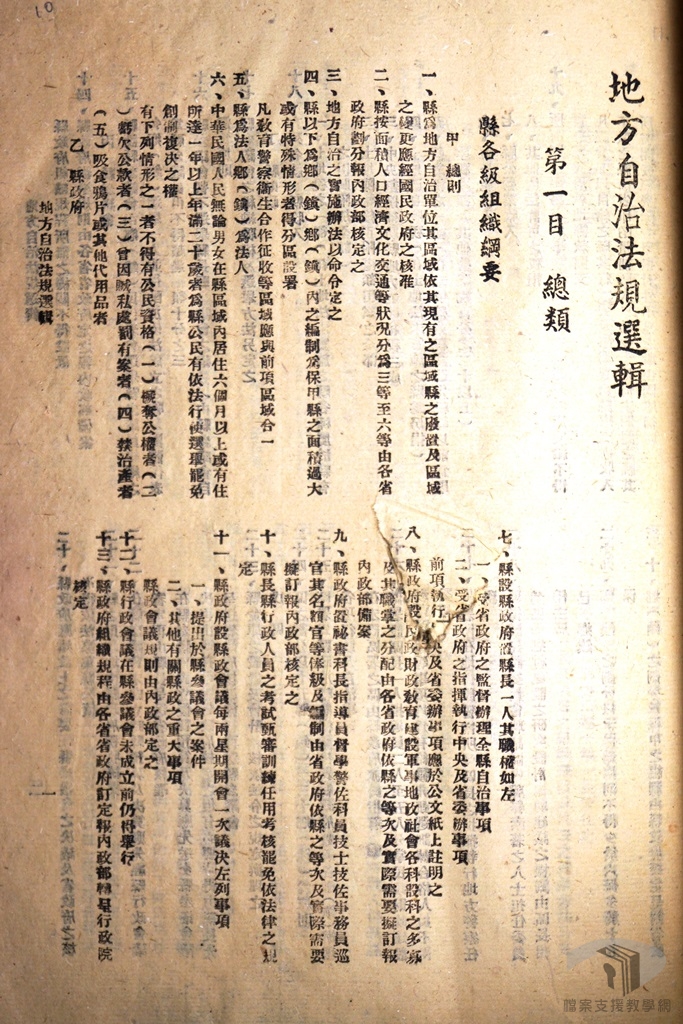 地方自治法規選輯
第一目　總類
縣各級組織綱要
甲　總則
一、縣為地方自治單位其區域依其現有之區域縣之廢置及區域
之變更應經國民政府之核准
二、縣按面積人口經濟文化交通等狀況分為三等至六等由各省
政府劃分報內政部核定之
三、地方自治之實施辦法以命令定之
四、縣以下為鄉（鎮）鄉（鎮）內之編制為保甲縣之面積過大
或有特殊情形者得分區設署
凡教育警察衛生合作征收等區域應與前項區域合一
五、縣為法人鄉（鎮）為法人
六、中華民國人民無論男女在縣區域內居住六個月以上或有住
所達一年以上年滿二十歲者為縣公民有依法行使選舉罷免
創制複決之權
有下列情形之一者不得有公民資格（一）褫奪公權者（二
）虧欠公款者（三）曾因贓私處罰有案者（四）禁治產者
（五）吸食鴉片或其他代用品者
乙　縣政府
地方自治法規選輯
七、縣設縣政府置縣長一人其職權如左
一、受省政府之監督辦理全縣自治事項
二、受省政府之指揮執行中央及省委辦事項
前項執行中央及省委辦事項應於公文紙上註明之
八、縣政府設民政財政教育建設軍事地政社會各科設科之多寡
及其職掌之分配由各省政府依縣之等次及實際需要擬訂報
內政部備案
九、縣政府置祕書科長指導員督學警佐科員技士技佐事務員巡
官其名額官等俸級及編制由省政府依縣之等次及實際需要
擬訂報內政部核定之
十、縣長縣行政人員之考試甄審訓練任用考核罷免依法律之規
定
十一、縣政府設縣政會議每兩星期開會一次議決左列事項
一、提出於縣參議會之案件
二、其他有關縣政之重大事項
縣政會議規則由內政部定之
十二、縣行政會議在縣參議會未成立前仍得舉行
十三、縣政府組織規程由各省省政府訂定報內政部轉呈行政院
核定
一
10
檔案支援教學網